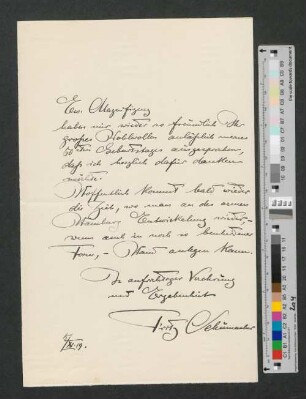 Ew. Magnifizenz
haben mir wieder so freundlich Ihr
großes Wohlwollen anläßlich meines
50ten Geburtstages ausgesprochen,
daß ich herzlich dafür danken
möchte.
Hoffentlich kommt bald wieder
die Zeit, wo man an der armen
Hamburg Entwickelung wieder,-
wenn auch in noch so bescheidener
Form,- Hand anlegen kann.
In aufrichtiger Verehrung
und Ergebenheit
Fritz Schumacher
XI.19.